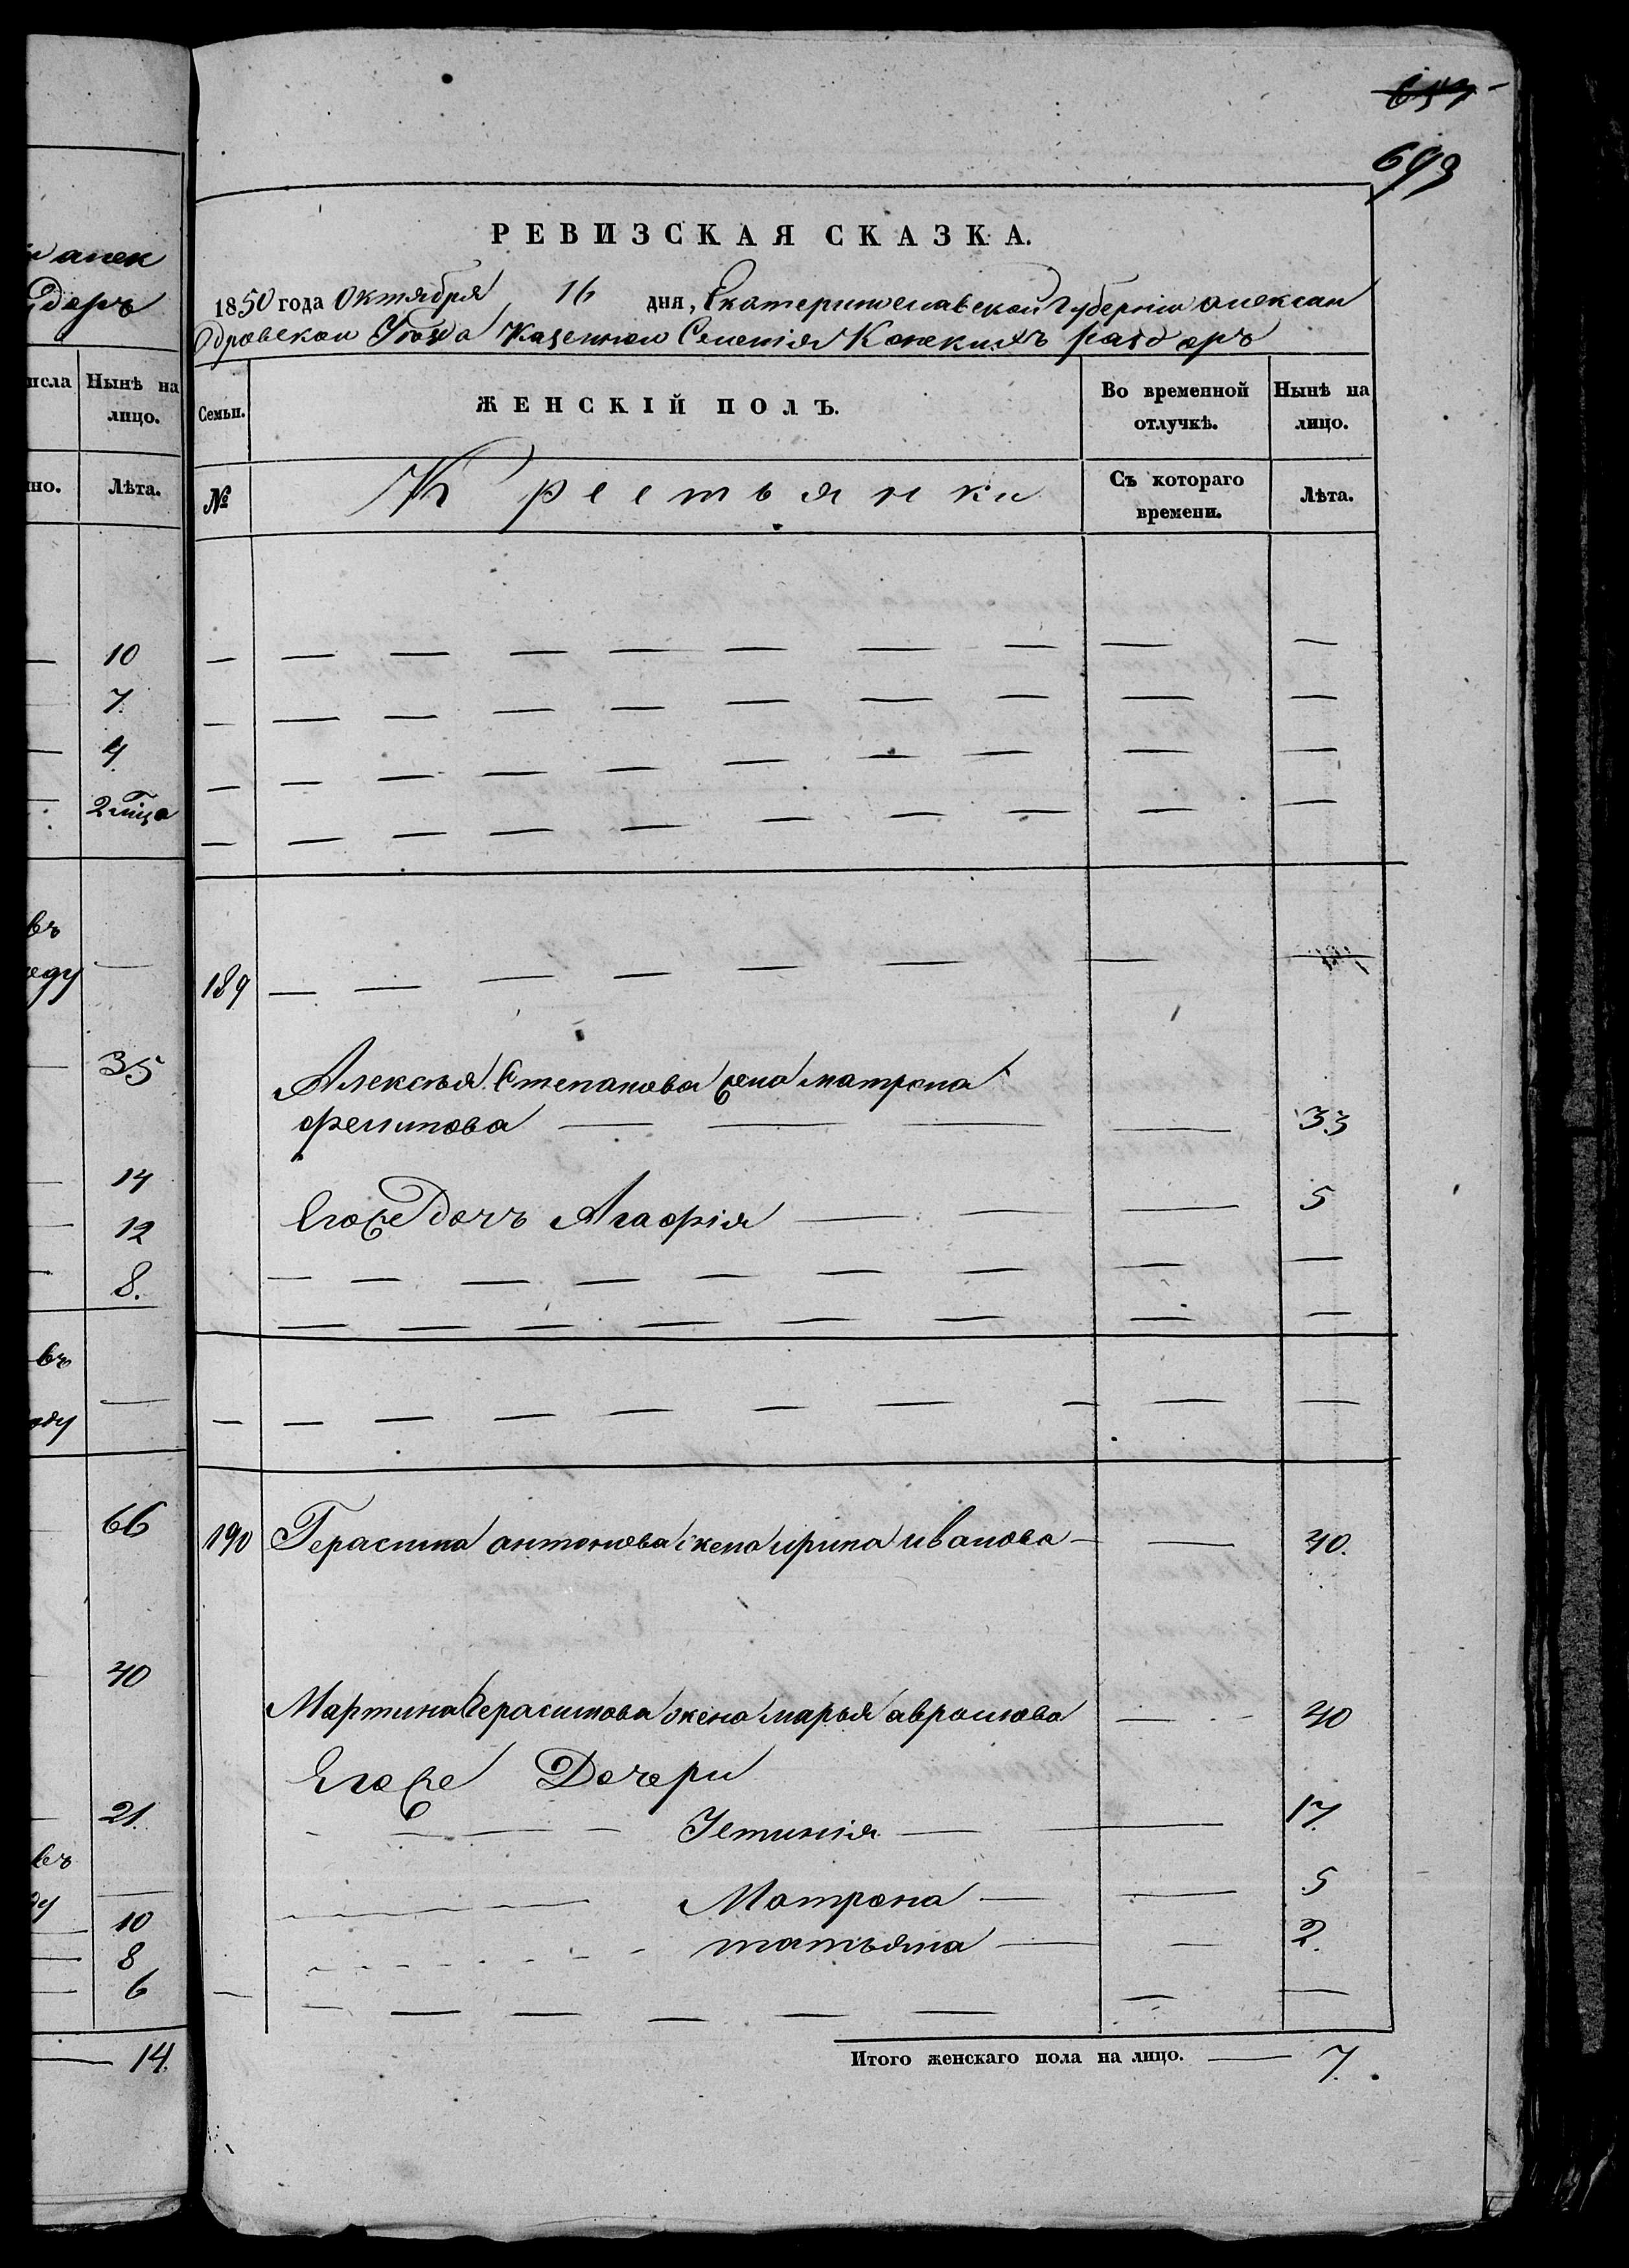 657
693
РЕВИЗСКАЯ СКАЗКА.
1850 года Октября 16 дня, Екатеринославской Губерніи Алексан
дровскои Уѣзда Казенного Селенія Конскихъ раздоръ
Семьи.
ЖЕНСКІЙ ПОЛЪ.
Во временной отлучкѣ.
Нынѣ на лицо.
№
Крестьянки
Съ котораго времени.
Лѣта.
189
Алексѣя Степанова жена матрона
филипова 33
Егоже дочь Агафія 5
190 Герасима антонова жена ирина иванова 40.
Мартина Герасимова жена марья аврамова 40
Егоже Дочери
Устинія 17.
Матрона 5
татьяна 2.
Итого женскаго пола на лицо. 7.
алек
здоръ
исла
Нынѣ на
лицо.
но.
Лѣта.
10
7.
4.
2 мѣца
въ
оду
35
14
12
8.
въ
оду
66
40
21.
въ
ду
10
8
6
14.